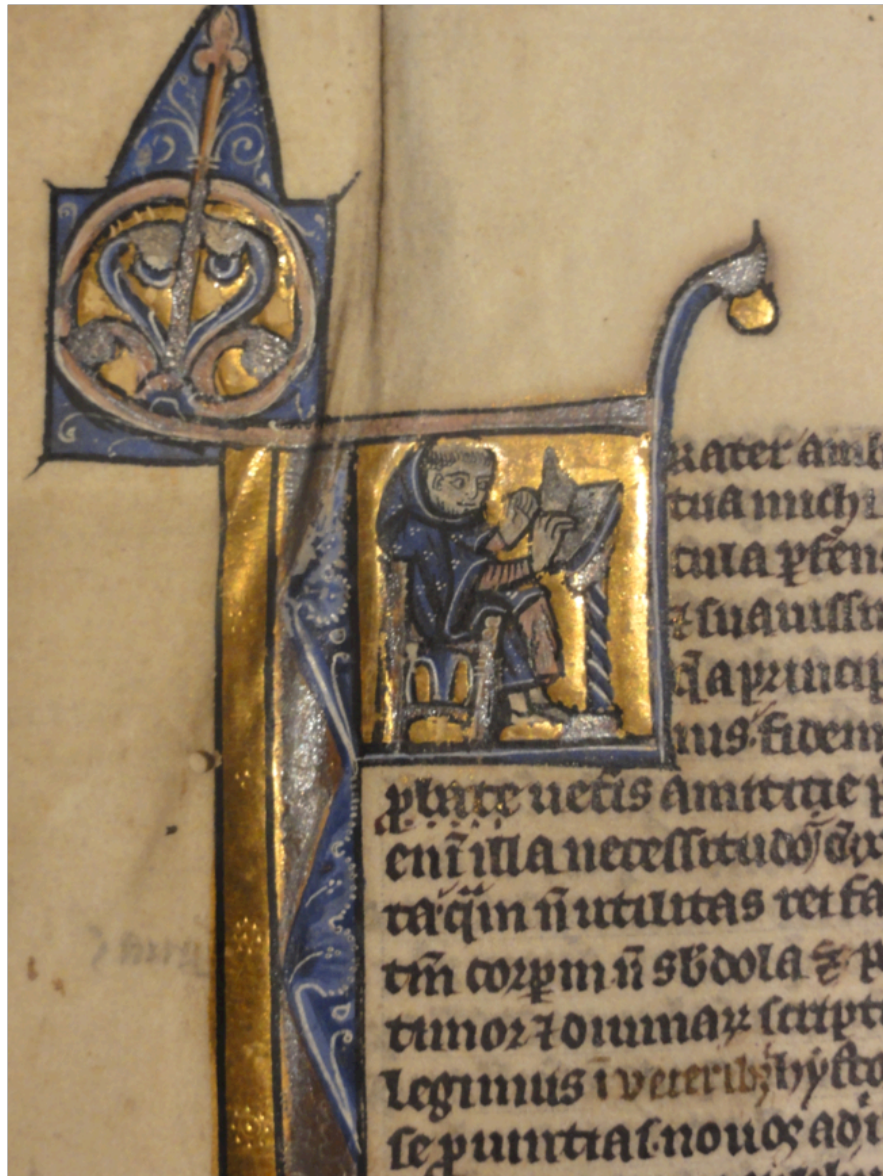 Frater amb
tua mich
cula ꝑferens
⁊ suauissi
q̄ a princip
fidem
ꝓbate uet̄is amicicie p
enī illa necessitudo
ta q̄m n̄ utilitas rei fa
tm̄ corꝑm n̄ sb̄dola & p
timor ⁊ diuinaꝝ script
legimus ī veterib; hysto
se ꝓuintias. nouos adi